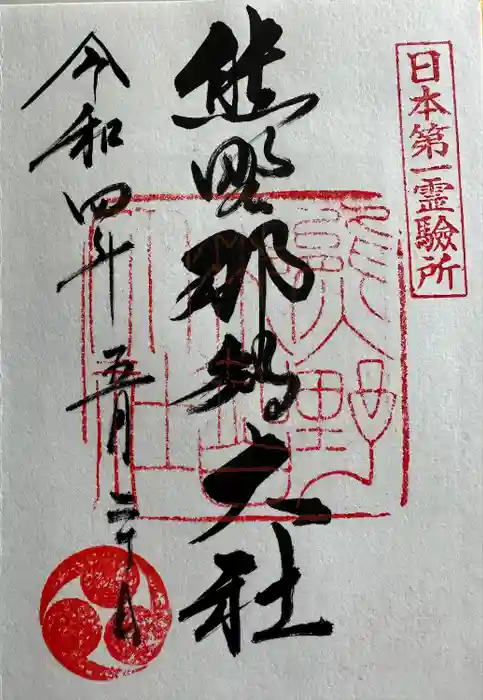 日本第一霊驗所
熊野那智大社
令和四年五月二十日